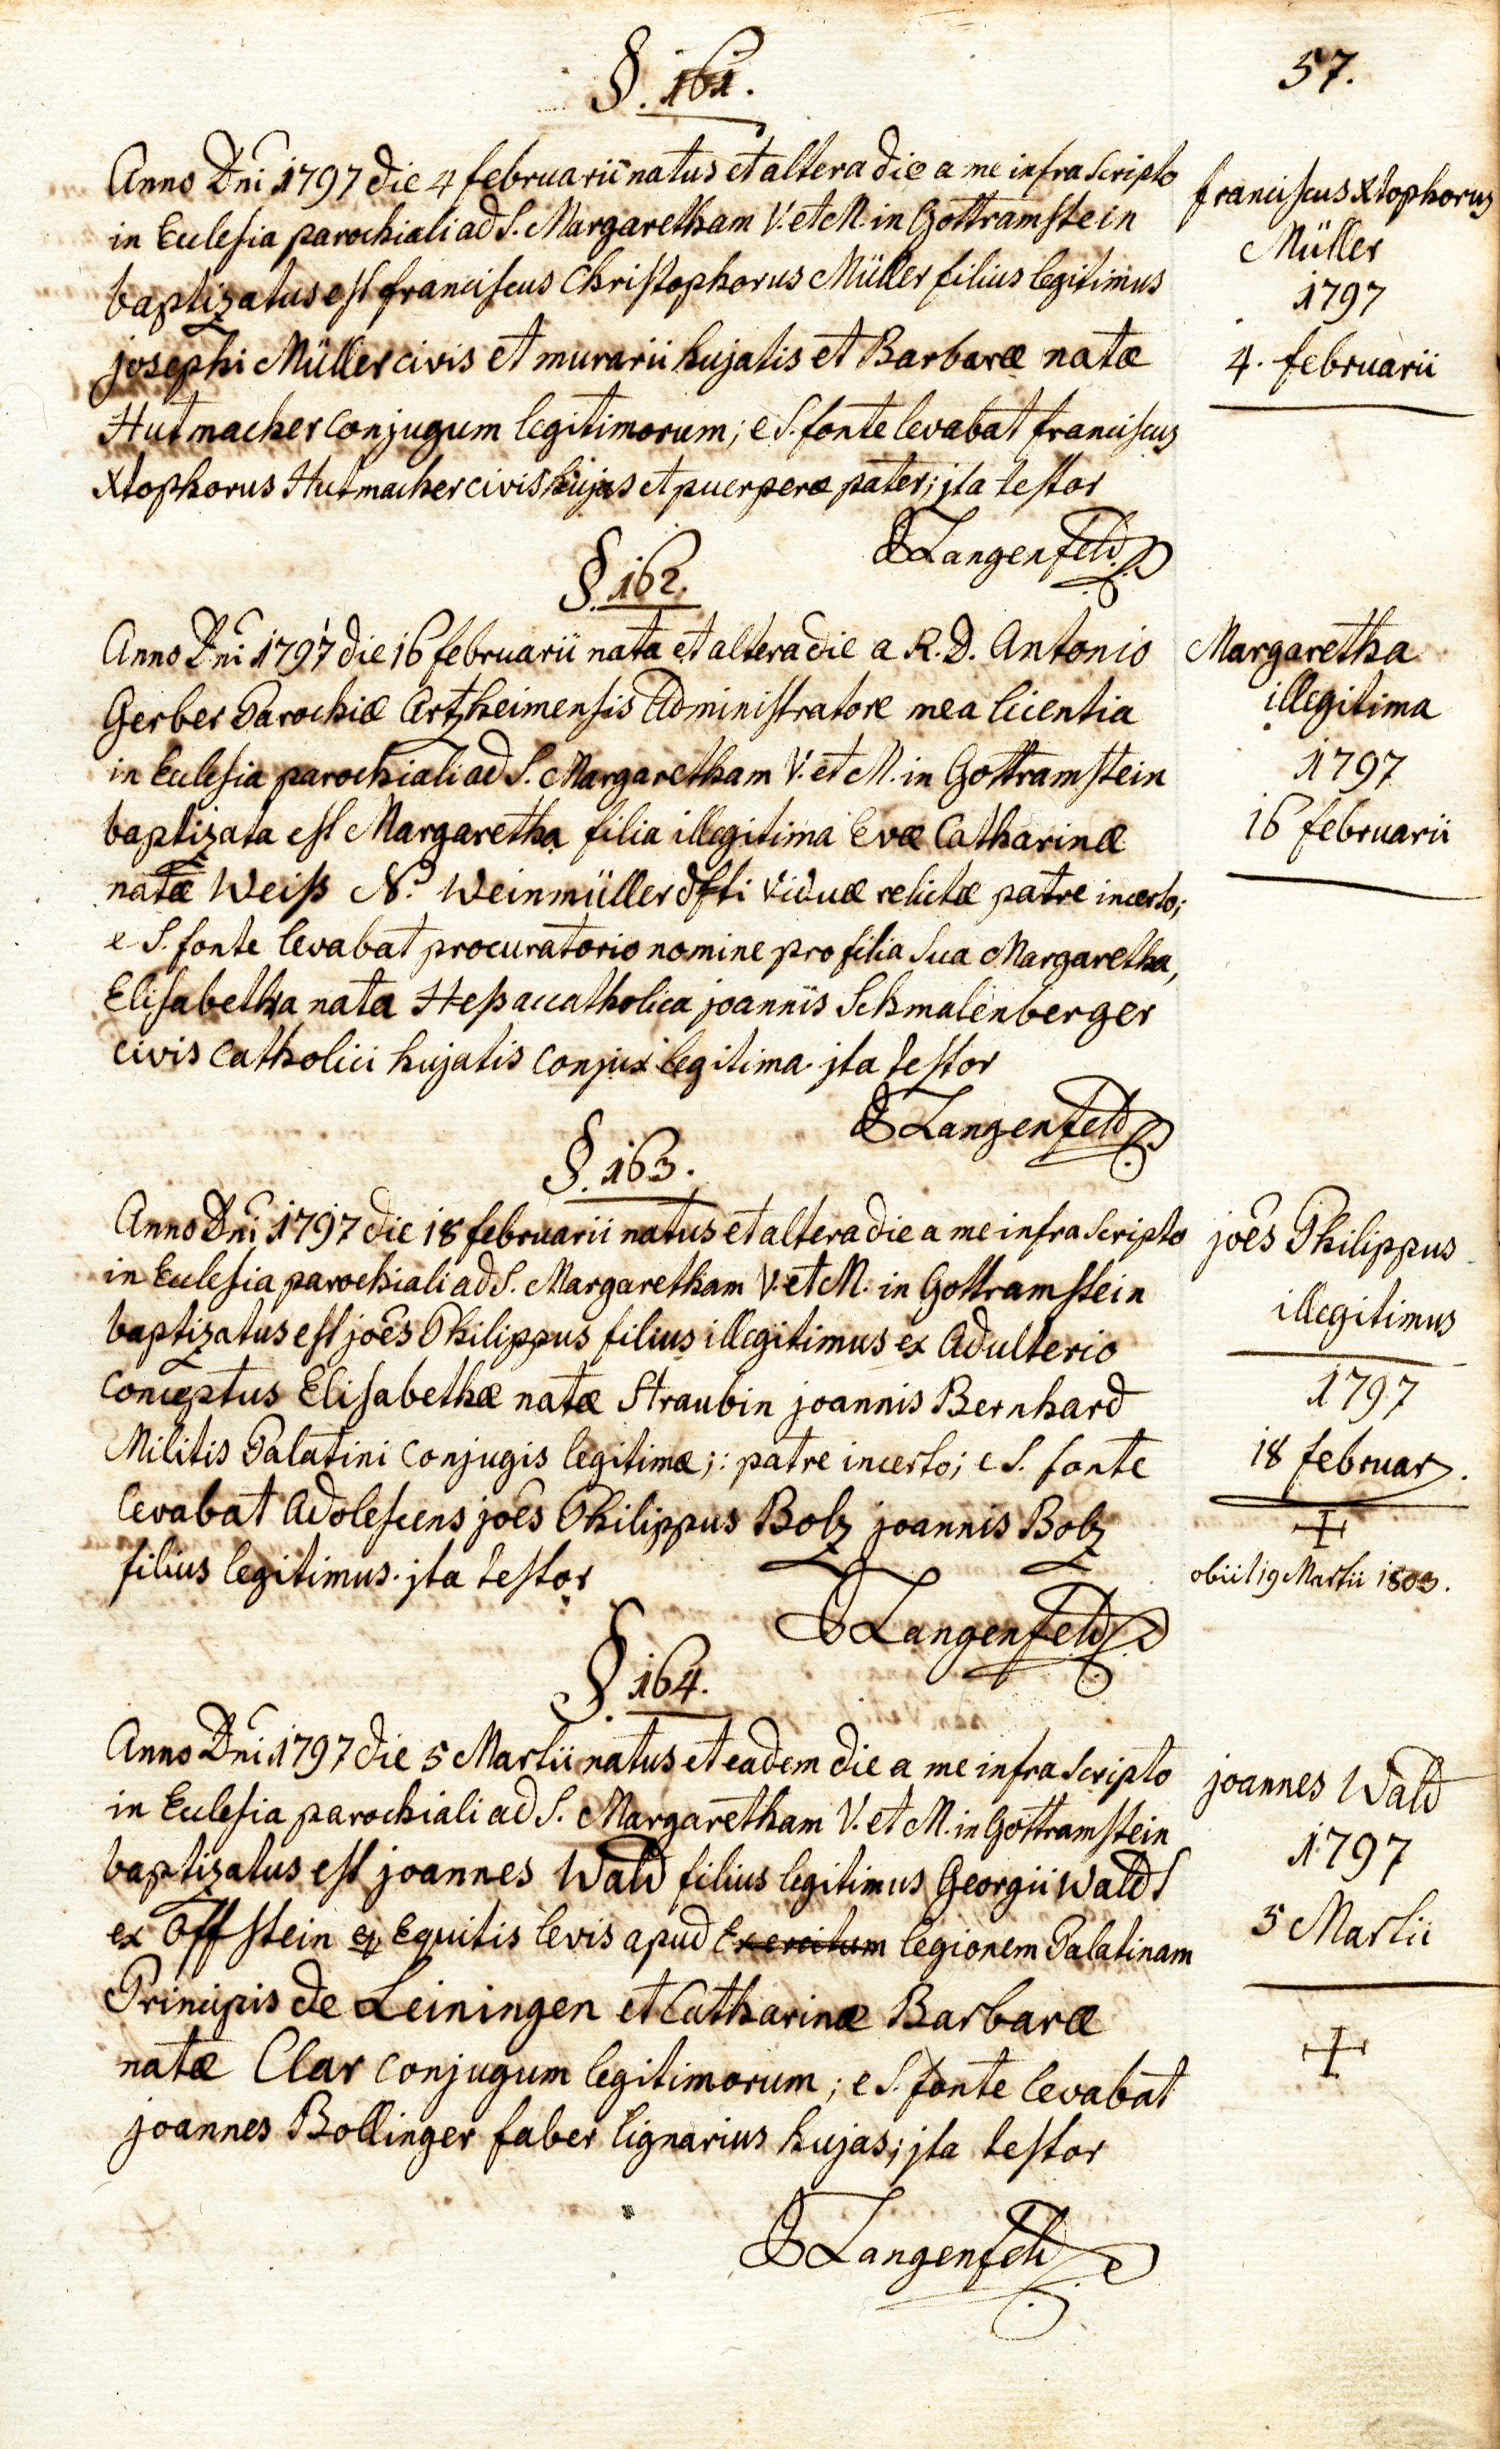 57.
§. 161.
Anno Dni 1797 die 4 februarii natus et altera die a me infra scripto
in Ecclesia parochiali ad S. Margaretham V. et M. in Gottramstein
baptizatus est franciscus Christophorus Müller filius legitimus
josephi Müller civis et murarii hujatis et Barbaræ natæ
Hutmacher conjugum legitimorum; e S. fonte levabat franciscus
Xtophorus Hutmacher civis hujas et puerperæ pater; jta testor
Langenfeld
franciscus Xtophorus
Müller
1797
4. februarii
§. 162.
Anno Dni 1797 die 16 februarii nata et altera die a R. D. Antonio
Gerber Parochiæ Artzheimensis Administratore mea licentia
in Ecclesia parochiali ad S. Margaretham V. et M. in Gottramstein
baptizata est Margaretha filia illegitima Evæ Catharinæ
natæ Weiß N. Weinmüller dfti viduæ relictæ patre incerto;
e S. fonte levabat procuratorio nomine pro filia sua Margaretha,
Elisabetha nata Heß accatholica joannis Schmalenberger
civis catholici hujatis conjux legitima. jta testor
Langenfeld
Margaretha
illegitima
1797
16 februarii
§. 163.
Anno Dni 1797 die 18 februarii natus et altera die a me infra scripto
in Ecclesia parochiali ad S. Margaretham V. et M. in Gottramstein
baptizatus est joês Philippus filius illegitimus ex Adulterio
conceptus Elisabethæ natæ Straubin joannis Bernhard
Militis Palatini conjugis legitimæ;: patre incerto; e S. fonte
levabat Adolescens joês Philippus Bolz joannis Bolz
filius legitimus. jta testor
Langenfeld
joês Philippus
illegitimus
1797
18 februar.
obiit 19 Martii 1803.
§. 164.
Anno Dni 1797 die 5 Martii natus et eadem die a me infra scripto
in Ecclesia parochiali ad S. Margaretham V. et M. in Gottramstein
baptizatus est joannes Wald filius legitimus Georgii Wald
ex Offstein Equitis levis apud Exercitum legionem Palatinam
Principis de Leiningen et Catharinæ Barbaræ
natæ Clar conjugum legitimorum; e S. fonte levabat
joannes Bollinger faber lignarius hujas; jta testor
Langenfeld
joannes Wald
1797
5 Martii